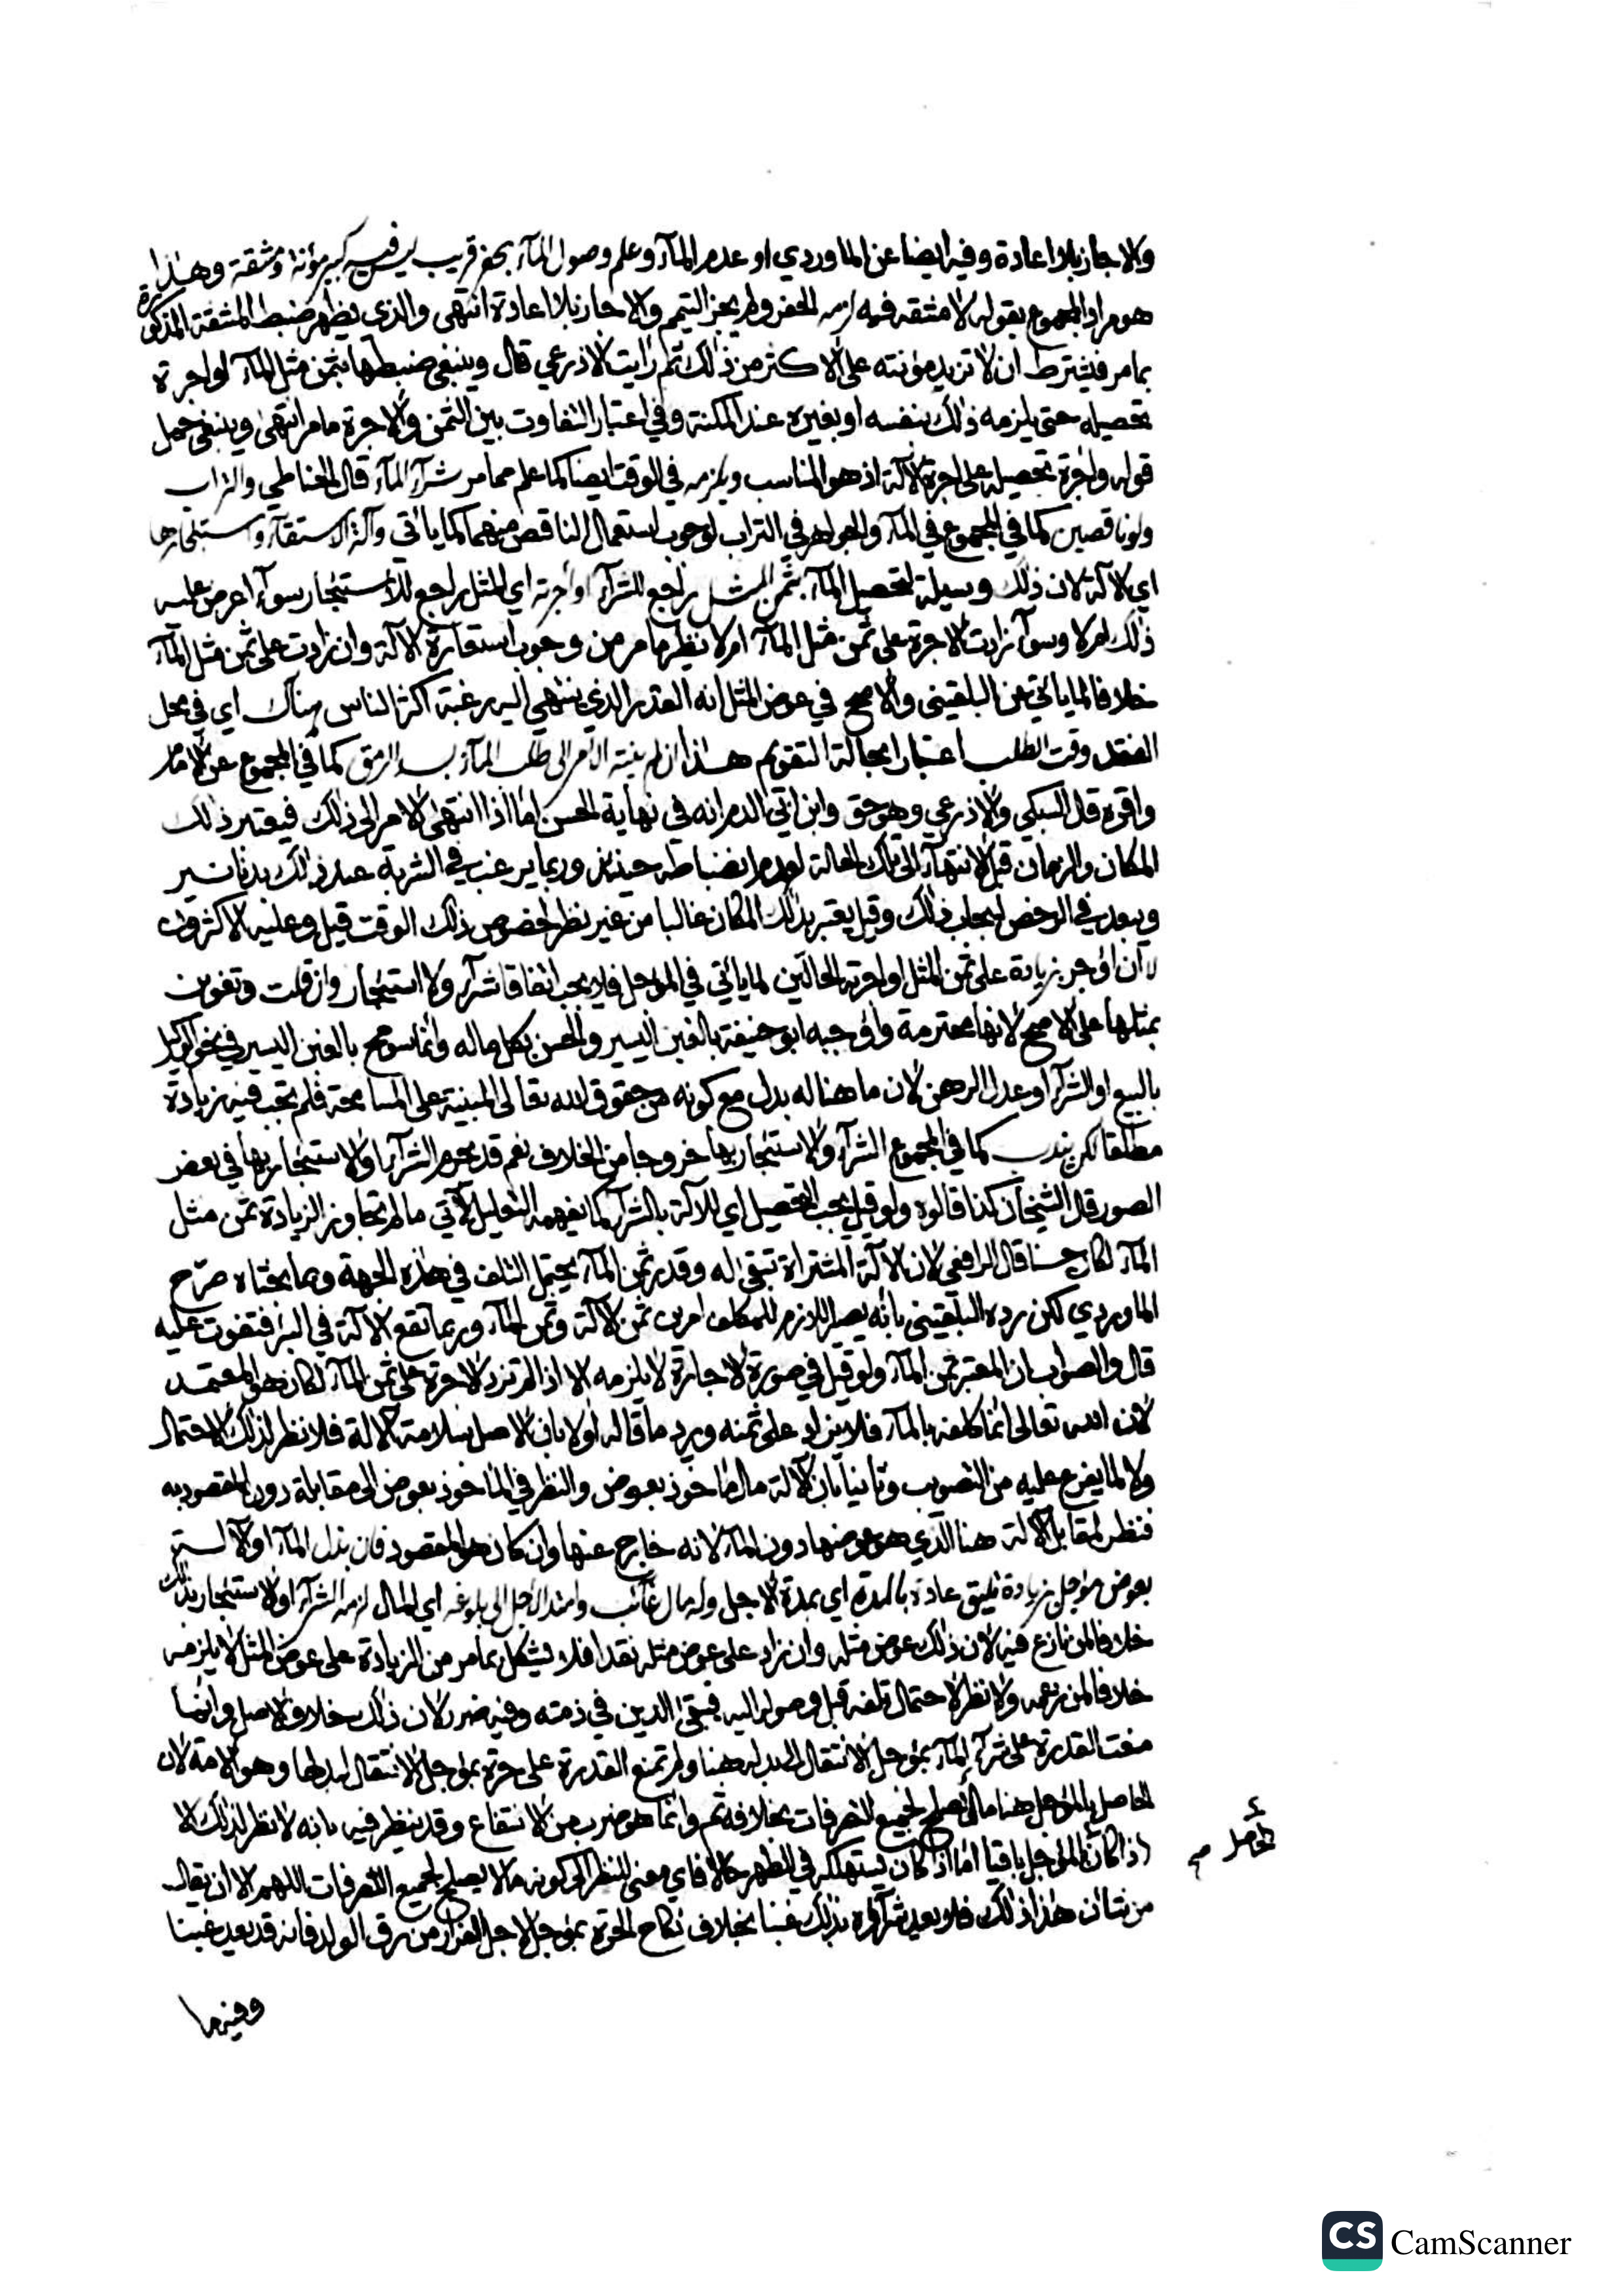 والا جاز بلا اعادة وفيه ايضا عن الماوردي او عدم المآء وعلم وصول المآء بحفر قريب ليس فيه كبير مؤنة ومشقة وهذا
هو مراد المجموع بقوله لا مشقه فيه لزمه الحفر ولم يجز التيمم والا جاز بلا اعادة انتهى والذي يظهر ضبط المشقة المذكورة
بما مر فيشترط ان لا تزيد مؤنته على الاكثر من ذلك ثم رايت الاذرعي قال وينبغي ضبطها بثمن مثل المآء او اجرة
تحصيله حتى يلزمه ذلك بنفسه او بغيره عند المكنة وفي اعتبار التفاوت بين الثمن والاجرة ما مر انتهى وينبغي حمل
قوله واجرة تحصيله على اجرة الآلة اذ هو المناسب ويلزمه في الوقت ايضا كما علم مما مر شرآء المآء قال الحناطي والتراب
ولو ناقصين كما في المجموع في المآء والجواهر في التراب لوجوب استعمال الناقص منهما كما ياتي وآلة الاستقآء واستئجارها
اي الآلة لان ذلك وسيلة لتحصيل المآء بثمن المثل راجع للشرآء او اجرته اي المثل راجع للاستئجار سوآء اعرض عليه
ذلك ام لا وسوآء زادت الاجرة على ثمن مثل المآء ام لا نظير ما مر من وجوب استعارة الآلة وان زادت على ثمن مثل المآء
خلافا لما ياتي عن البلقيني والاصح في عوض المثل انه القدر الذي ينتهي اليه رغبة اكثر الناس هناك اي في محل
الفقد وقت الطلب اعتبارا بحالة التقويم هذا ان لم ينته الامر الى طلب المآء لسد الرمق كما في المجموع عن الامام
واقره قال السبكي والاذرعي وهو حق وابن ابي الدم انه في نهاية الحسن اما اذا انتهى الامر الى ذلك فيعتبر ذلك
المكان والزمان قبل الانتهآء الى تلك الحالة لعدم انضباطه حينئذ وربما يرغب في الشربة عند ذلك بدنانير
ويبعد في الرخص ايجاب ذلك وقيل يعتبر بذلك المكان غالبا من غير نظر لخصوص ذلك الوقت قيل وعليه الاكثرون
لا ان اوجر بزيادة على ثمن المثل او اجرته الحالين لما ياتي في المؤجل فلا يجب اتفاقا شرآء ولا استئجار وان قلت وتغوبن
بمثلها على الاصح لانها محترمة واوجبه ابو حنيفة بالغبن اليسير والحسن بكل ماله وانما سومح بالغبن اليسير في نحو الوكيل
بالبيع او الشرآء او عدل الرهن لان ما هنا له بدل مع كونه من حقوق الله تعالى المبنية على المسامحة فلم تجب فيه زيادة
مطلقا لكن يندب كما في المجموع الشرآء والاستئجار بها خروجا من الخلاف نعم قد يحرم الشرآء او الاستئجار بها في بعض
الصور قال الشيخان كذا قالوه ولو قيل يجب التحصيل اي للآلة بالشرآء كما يفهمه التعليل الآتي ما لم تجاوز الزيادة ثمن مثل
المآء لكان حسنا قال الرافعي لان الآلة المشتراة تبقى له وقدر ثمن المآء يحتمل التلف في هذه الجهة وبما بحثاه صرح
الماوردي لكن رده البلقيني بانه يصير اللازم للمكلف امرين ثمن الآلة وثمن المآء وربما تقع الآلة في البئر فتفوت عليه
قال والصواب ان المعتبر ثمن المآء ولو قيل في صورة الاجارة لا يلزمه الا اذا لم تزد الاجرة على ثمن المآء لكان هو المعتمد
لان الله تعالى انما كلفه بالمآء فلا يزاد على ثمنه ويرد ما قاله اولا بان الاصل سلامة الآلة فلا نظر لذلك الاحتمال
ولا لما يفرع عليه من التصويب وثانيا بان الآلة مال ماخوذ بعوض والنظر في الماخوذ بعوض الى مقابله دون المقصود به
فنظر لمقابل الآلة هنا الذي هو عوضها دون المآء لانه خارج عنها وان كان هو المقصود فان بذل المآء او الآلة
بعوض مؤجل بزيادة تليق عادة بالمدة اي بمدة الاجل وله مال غائب وامتد الاجل الى بلوغه اي المال لزمه الشرآء او الاستئجار بذلك
خلافا لمن نازع فيه لان ذلك عوض مثله وان زاد على عوض مثله نقدا فلا يشكل بما مر من الزيادة على عوض المثل لا يلزمه
خلافا لمن زعمه ولا نظر لاحتمال تلفه قبل وصوله اليه فيبقى الدين في ذمته وفيه ضرر لان ذلك خلاف الاصل وانما
منعت القدرة على شرآء المآء بمؤجل الانتقال الى بدله هنا ولم تمنع القدرة على حرة بمؤجل الانتقال لبدلها وهو الامة لان
الحاصل بالمؤجل هنا مال يصلح لجميع التصرفات بخلافه ثم وانما هو ضرب من الانتفاع وقد ينظر فيه بانه لا نظر لذلك الا
اذا كان المؤجل باقيا اما اذا كان يستهلكه في الطهر حالا فاي معنى للنظر الى كونه مالا يصلح لجميع التصرفات اللهم الا ان يقال
من شان هذا ذلك فلم يعد شرآؤه بذلك غبنا بخلاف نكاح الحرة بمؤجل لاجل الفرار من رق الولد فانه قد يعد غبنا
وفيهما
CS CamScanner